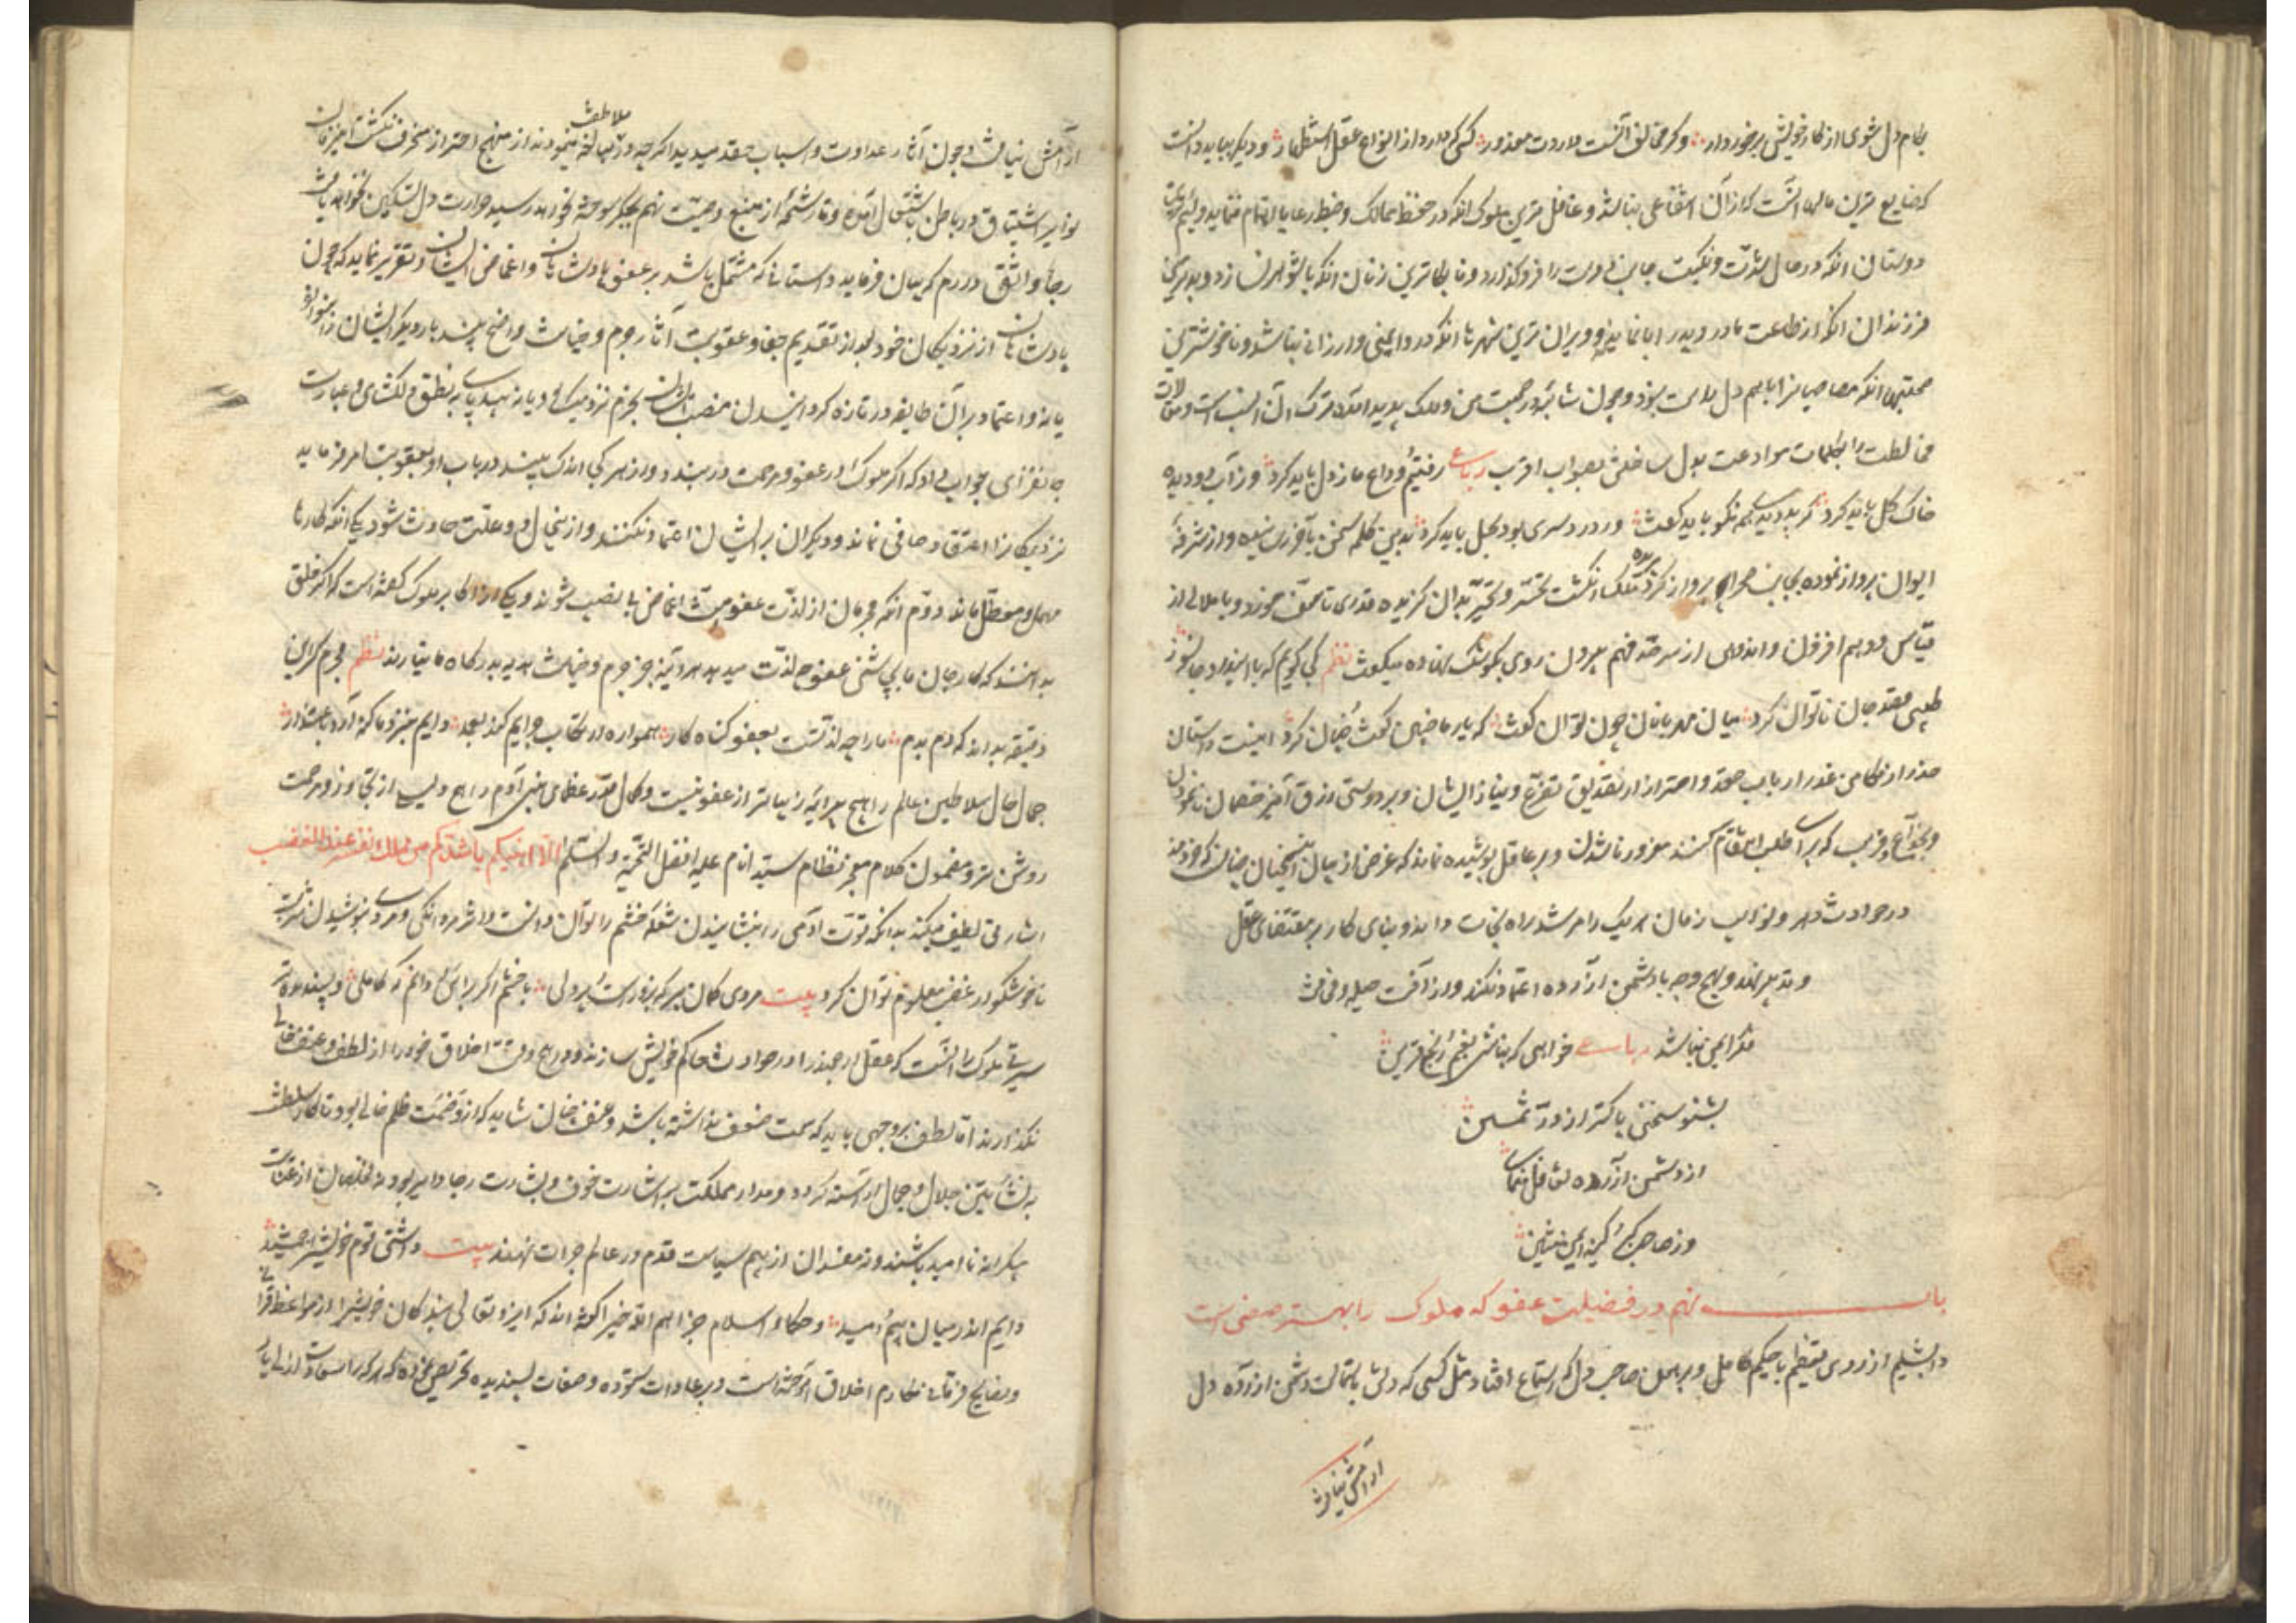 بکام دل شوی از کار خویشتن برخوردار وگر مخالف آنست داردت معذور کسی که دارد از انواع عقل استظهار و دیگر بباید دانست
که ضایع ترین مالها آنست که از آن انتفاعی نباشد و غافل ترین ملوک آنکه در حفظ ممالک و ضبط رعایا اهتمام ننماید و لئیم ترین
دوستان آنکه در حال شدت و نکبت جانب دوست را فرو گذارد و نابکارترین زنان آنکه با شوهر نسازد و بدترین
فرزندان آنکه از طاعت مادر و پدر ابا نماید و ویران ترین شهرها آنکه درو ایمنی و ارزانی نباشد و ناخوشترین
صحبتها آنکه مصاحبان را با هم دل راست نبود و چون شائبه در صحبت من و ملک پدید آمد ترک آن انسب است و
مخالطت را بکلمات موادعت بدل ساختن بصواب اقرب رباعی رفتیم و وداع ما ز دل باید کرد وز آب دو دیده
خاک گل باید کرد گر بد دیدی بهم نکو باید گفت ور درد سری بود بحل باید کرد بدین کلمه سخن بآخر رسانیده و از شرفه
ایوان پرواز نموده بجانب صحرا پرواز کرد ملک انگشت تحسر و تحیر بدندان گزیده قدری تاسف خورد و با ملالی از
قیاس وهم افزون و اندوهی از سرحد فهم بیرون روی بکوشک نهاده میگفت نظم کی گویم که با این درد جانسوز
طبیبم قصد جان ناتوان کرد میان مهربانان چون توان گفت که یار ما چنین گفت و چنان کرد اینست داستان
حذر از مکامن غدر ارباب حقد و احتراز از تصدیق تضرع و نیاز ایشان و بر دوستی زرق آمیز خصمان
و خداع و فریب که برای طلب انتقام کنند مغرور ناشدن و بر عاقل پوشیده نماند که غرض از بیان این سخنان چنانست که خردمند
در حوادث دهر و نوایب زمان هر یک را مرشد راه نجات داند و بنای کار بر مقتضای عقل
و تدبیر نهد و بهیچ وجه با دشمن آزرده اعتماد نکند و از آفت حیله و
مکر ایمن نباشد رباعی خواهی که نباشی بغم و رنج قرین
بشنو سخنی پاکتر از در ثمین
از دشمن آزرده تغافل منمای
وز صاحب کبر و کینه ایمن منشین
باب نهم در فضیلت عفو که ملوک را بهترین صفتی است
دابشلیم از روی تعظیم با حکیم کامل و برهمن صاحب دل گفت که استماع افتاد مثل کسی که دلش باستمالت دشمن آزرده دل
آرامش نیافت
ملاطفت
آرامش نیافت و چون آثار عداوت و اسباب حقد میدید اگرچه در مبالغه مینمودند از منهج احتراز منحرف نگشت این زمان
نوایر اشتیاق در باطن باشتعال آمده و تا رشحه از منبع وصیت نهم بجگر سوخته نخواهد رسید حرارت دل تسکین نخواهد یافت
رجاء واثق دارم که بیان فرماید داستانی که مشتمل باشد بر عفو پادشاهان و اغماض ایشان و تقریر نماید که چون
پادشاهان از نزدیکان خود بعد از تقدیم جفا و عقوبت آثار جرم و خیانت واضح بیند بار دیگر ایشان را بنوازد
یا نه و اعتماد بر آن طایفه در تازه گردانیدن منصب ایشان بحزم نزدیک بود یا نه بیدپای بنطق دلگشای و عبارت
جانفزای جواب داد که اگر ملوک در عفو و مرحمت دربندند و از هر کس اندک بینند در باب او بعقوبت امر فرماید
نزدیکانرا اعتقاد صافی نماند و دیگران بر ایشان اعتماد نکنند و از ینحال دو علت حادث شود یکی آنکه کارها
مهمل و معطل ماند دوم آنکه مجرمان از لذت عفو و منت اغماض بی نصیب شوند و یکی از اکابر ملوک گفته است که اگر خلق
بدانند که کام جان ما بچاشنی عفو چه لذت میدهد هر آینه جز جرم و خیانت هدیه بدرگاه ما نیارند نظم مجرم گر این
دقیقه بداند که دم بدم ما را چه لذتست بعفو گناه کار همواره ارتکاب جرایم کند بعمد دایم بنزد ما گنه آرد باعتذار
جمال حال سلاطین عالم را هیچ پیرایه زیباتر از عفو نیست و کمال قدر عظمای بنی آدم را هیچ دلیل از تجاوز و مرحمت
روشن تر و مضمون کلام معجز نظام سید انام علیه افضل التحیة والسلام الا انبئکم باشدکم من ملک نفسه عند الغضب
اشارتی لطیف میکند بدانکه قوت آدمی را بنشانیدن شعله خشم را توان دانست و اثر مردانگی و مردمی بنوشیدن شربت
ناخوشگوار غضب معلوم توان کرد بیت مردی گمان مبر که بزورست و پردلی با خشم اگر برآئی دانم که کاملی و پسندیده تر
سیرتی ملوک را آنست که عقل ارجمند را در حوادث حاکم خویش سازند و در هیچ وقت اخلاق خود را از لطف و عنف خالی
نگذارند اما لطف بر وجهی باید که سمت ضعف نداشته باشد و عنف چنان شاید که از وصمت ظلم خالی بود تا کار سلطنت
بنشأتین جلال و جمال آراسته گردد و مدار مملکت بر اشارت خوف و بشارت رجا دایر بود نه مخلصان از عنایت
بیکرانه ناامید باشند و نه مفسدان از بیم سیاست قدم در عالم جرات نهند بیت داشتی قوم خویشرا جمشید
دایم اندر میان بیم و امید و حکماء اسلام جزاهم الله خیرا گفته اند که ایزد تعالی بندگان خویشرا از مواعظ قرآنی
و نصایح فرقانی مکارم اخلاق آموخته است و بر عادات ستوده و صفات پسندیده تحریص نموده که هر کرا سعادت ازلی یار